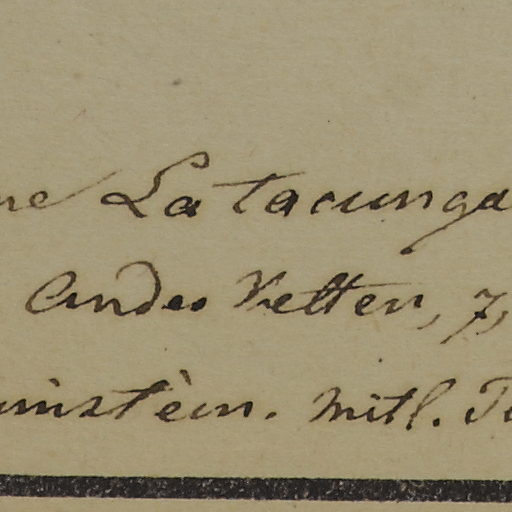 ne Latacunga
Andes Ketten, 7,
imstein. mitl. T